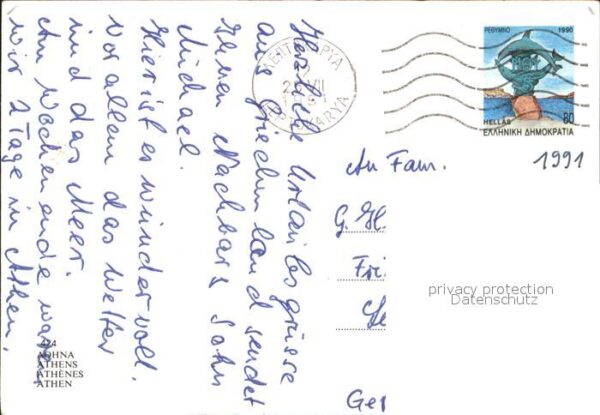 Herzliche Urlaubsgrüsse
aus Griechenland sendet
Ihnen Nachbars Sohn
Michael.
Hier ist es wundervoll.
Vor allem das Wetter
und das Meer.
Am Wochenende waren
wir 2 Tage in Athen.
424
ΑΘΗΝΑ
ATHENS
ATHÈNES
ATHEN
ΡΕΘΥΜΝΟ 1990
HELLAS 80
ΕΛΛΗΝΙΚΗ ΔΗΜΟΚΡΑΤΙΑ
1991
An Fam.
G. H
Fri
Ger
privacy protection
Datenschutz